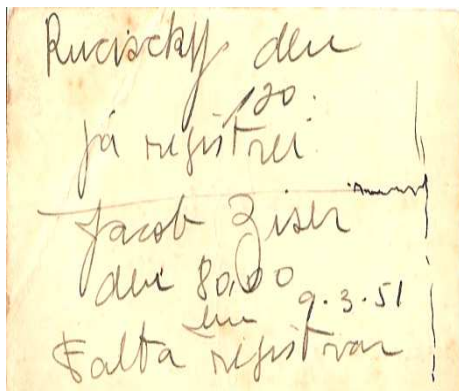 Rucisckyj deu
120.
já registrei
Jacob Ziser
deu 80,00
em 9.3.51
Falta registrar